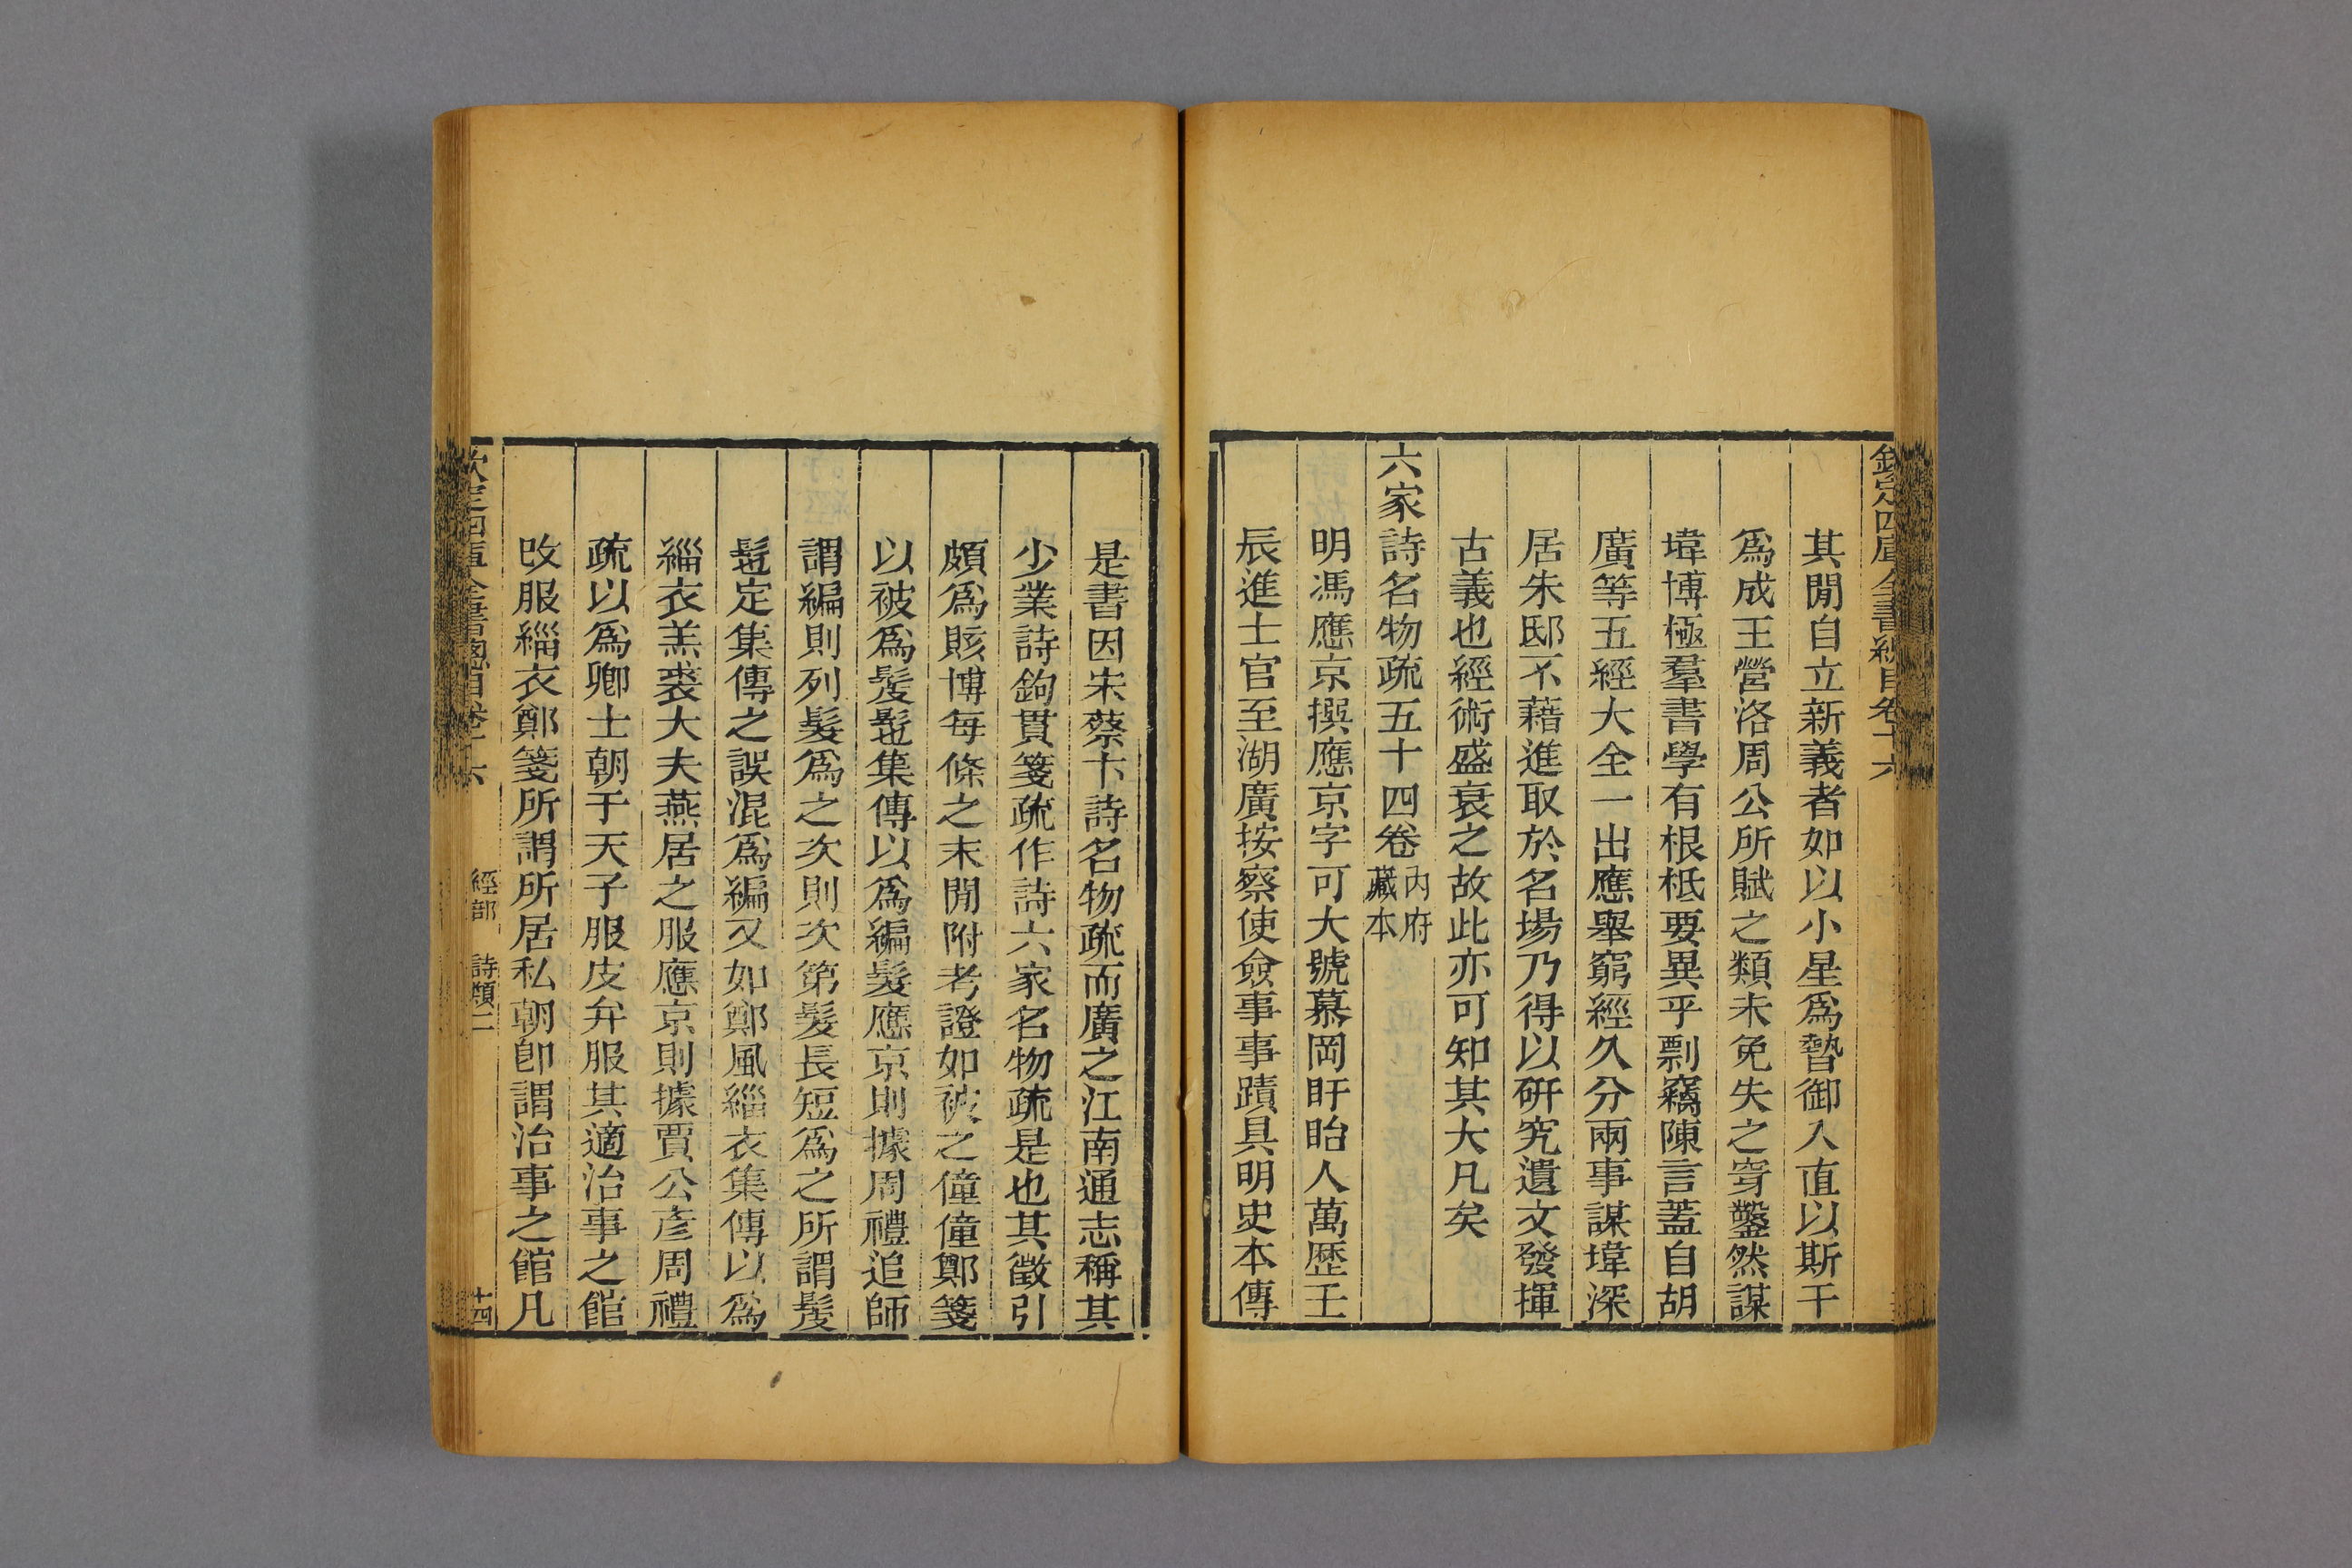 欽定四庫全書總目卷十六
其閒自立新義者如以小星爲暬御入直以斯干
爲成王營洛周公所賦之類未免失之穿鑿然謀
㙔博極羣書學有根柢要異乎剽竊陳言蓋自胡
廣等五經大全一出應舉窮經久分兩事謀㙔深
居朱邸不藉進取於名場乃得以研究遺文發揮
古義也經術盛衰之故此亦可知其大凡矣
六家詩名物疏五十四卷內府藏本
明馮應京撰應京字可大號慕岡盱眙人萬歷壬
辰進士官至湖廣按察使僉事事蹟具明史本傳
是書因宋蔡卞詩名物疏而廣之江南通志稱其
少業詩鉤貫箋疏作詩六家名物疏是也其徵引
頗爲賅博每條之末閒附考證如被之僮僮鄭箋
以被爲髲髢集傳以爲編髮應京則據周禮追師
謂編則列髮爲之次則次第髮長短爲之所謂髲
髢定集傳之誤混爲編又如鄭風緇衣集傳以爲
緇衣羔裘大夫燕居之服應京則據賈公彥周禮
疏以爲卿士朝于天子服皮弁服其適治事之館
改服緇衣鄭箋所謂所居私朝卽謂治事之館凡
欽定四庫全書總目卷十六 經部 詩類二 十四